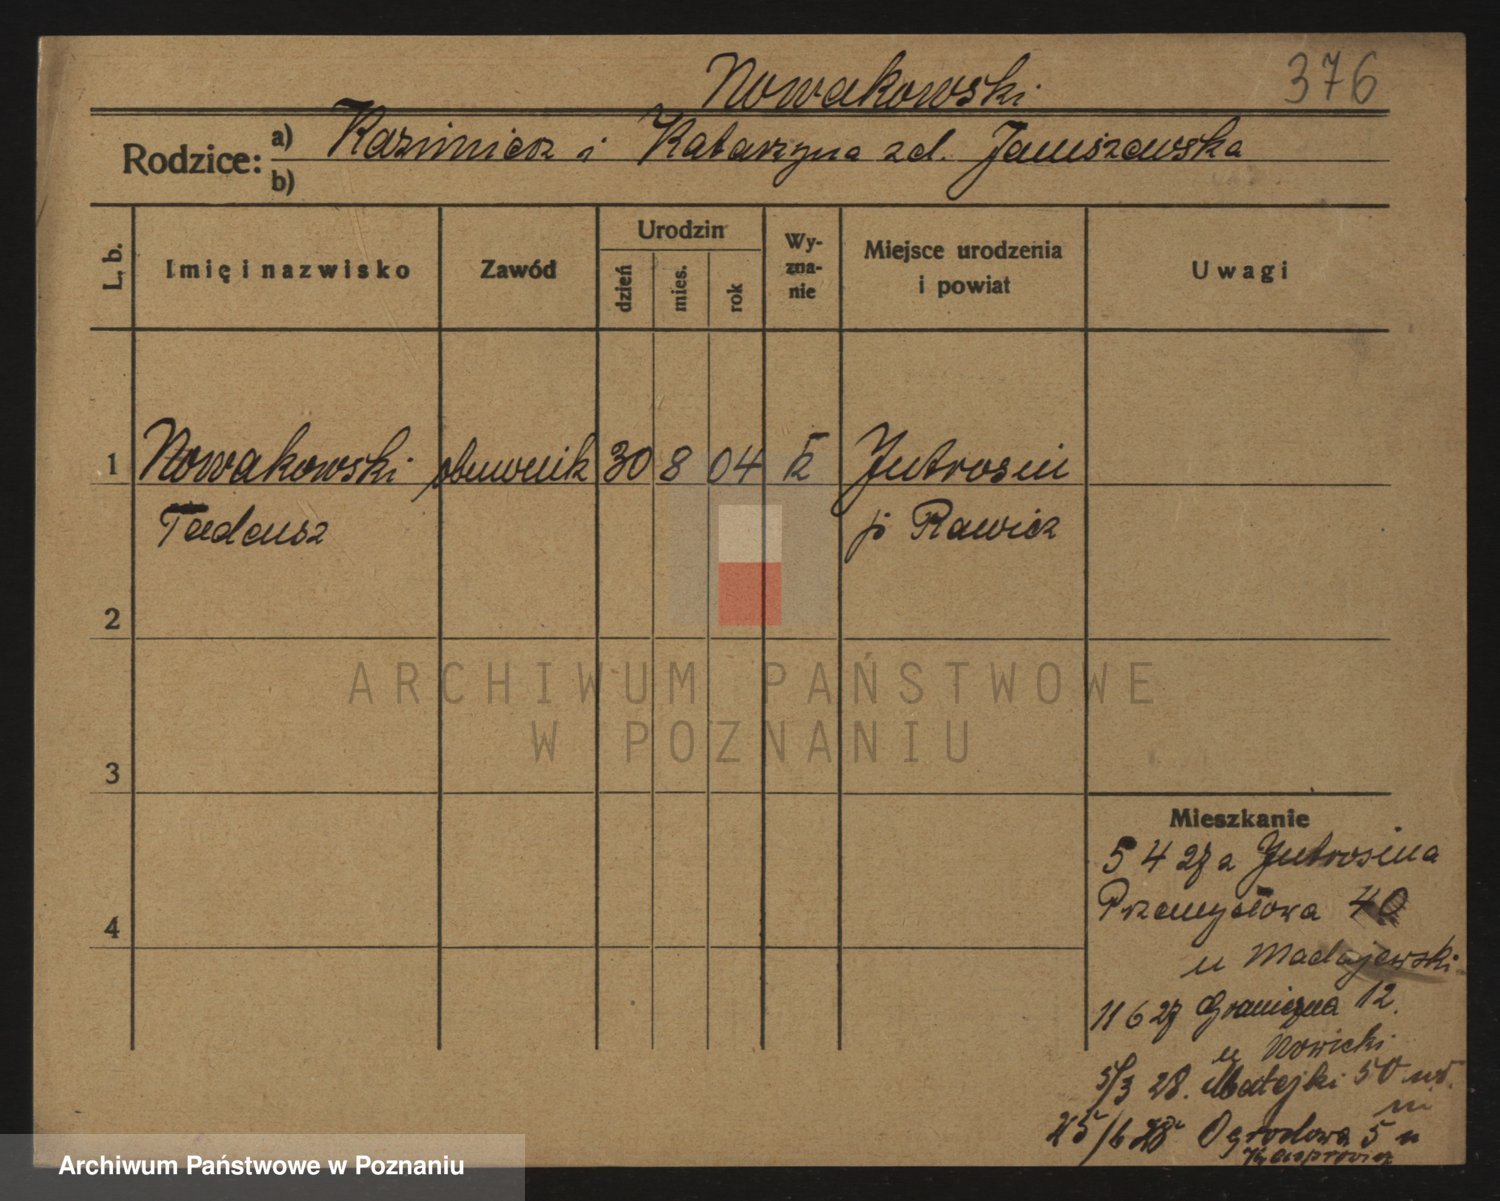 Nowakowski
376
Rodzice:
a) Kazimierz i Katarzyna zd. Janiszewska
b)
L. b.
Imię i nazwisko
Zawód
Urodzin
dzień
mies.
rok
Wy-
zna-
nie
Miejsce urodzenia
i powiat
Uwagi
1 Nowakowski obuwnik 30 8 04 k Jutrosin
Tadeusz p Rawicz
2
3
4
ARCHIWUM PAŃSTWOWE
W POZNANIU
Mieszkanie
5 4 27 z Jutrosina
Przemysłowa 40
u Madajewski
11 6 27 Graniczna 12.
u Nowicki
5/3 28. Matejki 50
25/6 28 Ogrodowa 5 u
Kasprowicz
Archiwum Państwowe w Poznaniu